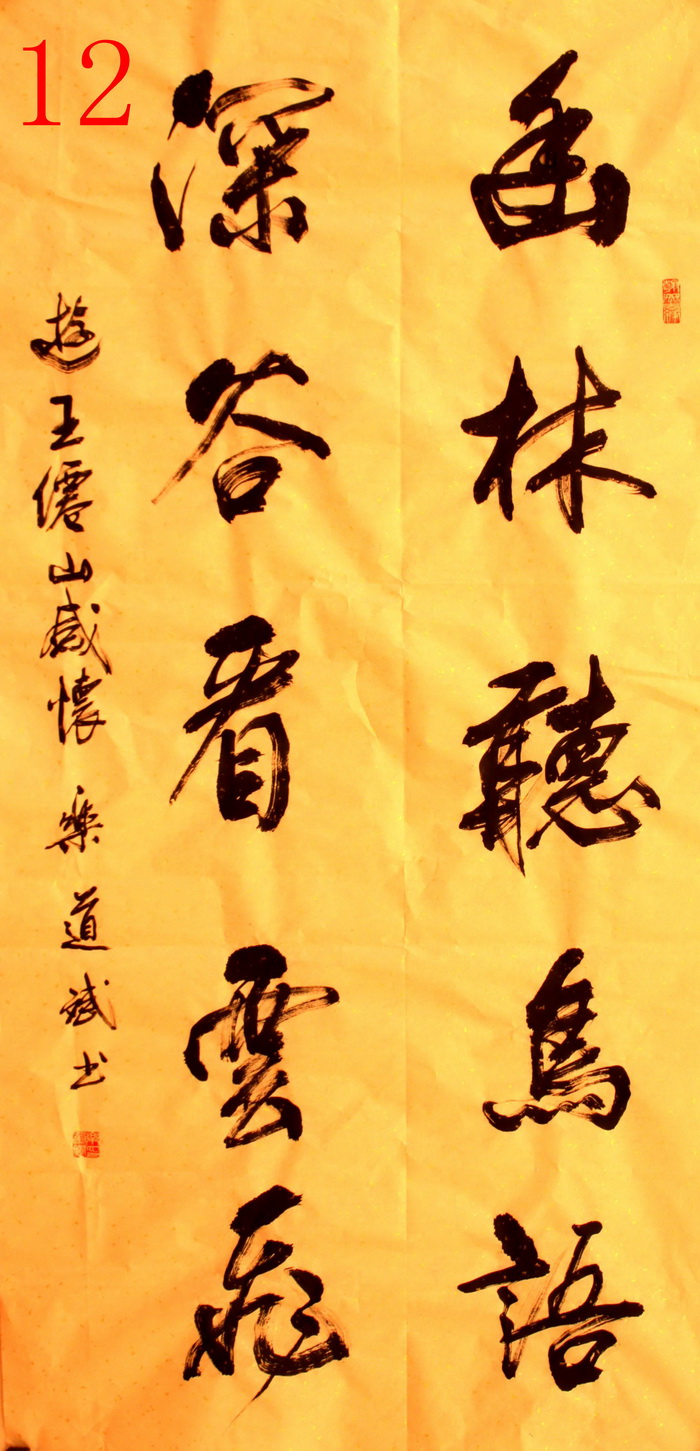 12
幽林聽鳥語
深谷看雲飛
遊王僊山感懷 樂道斌书